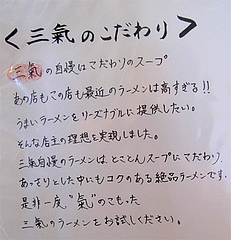 ＜三氣のこだわり＞
三氣の自慢はこだわりのスープ
あの店もこの店も最近のラーメンは高すぎる!!
うまいラーメンをリーズナブルに提供したい。
そんな店主の理想を実現しました。
三氣自慢のラーメンは、とことんスープにこだわり、
あっさりとした中にもコクのある絶品ラーメンです。
是非一度“氣”のこもった
三氣のラーメンをお試しください。